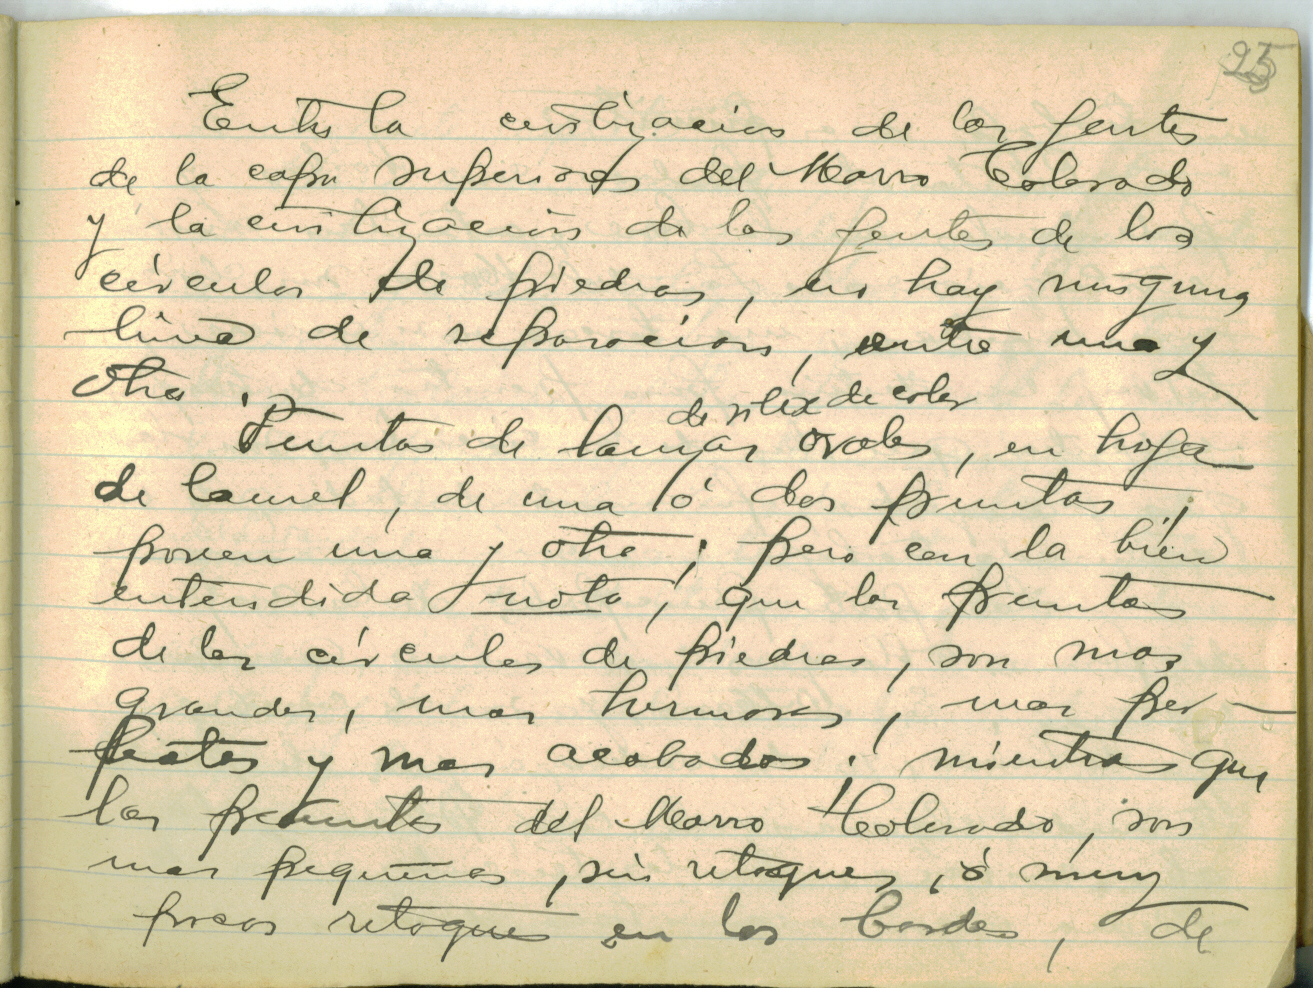 25
Entre la civilización de las gentes
de la capa superiores del Morro Colorado
y la civilización de las gentes de los
círculos de piedras, no hay ninguna
línea de separación, entre una y
otra.
de silex de color
Puntas de lanzas ovales, en hoja
de laurel, de una ó dos puntas;
poseen una y otra; pero con la bien
entendida nota, que las puntas
de los círculos de piedras, son mas
grandes, mas hermosas, mas per-
fectas y mas acabadas; mientras que
las puntas del Morro Colorado, son
mas pequeñas, sin retoques, ó muy
pocos retoques en los bordes, de